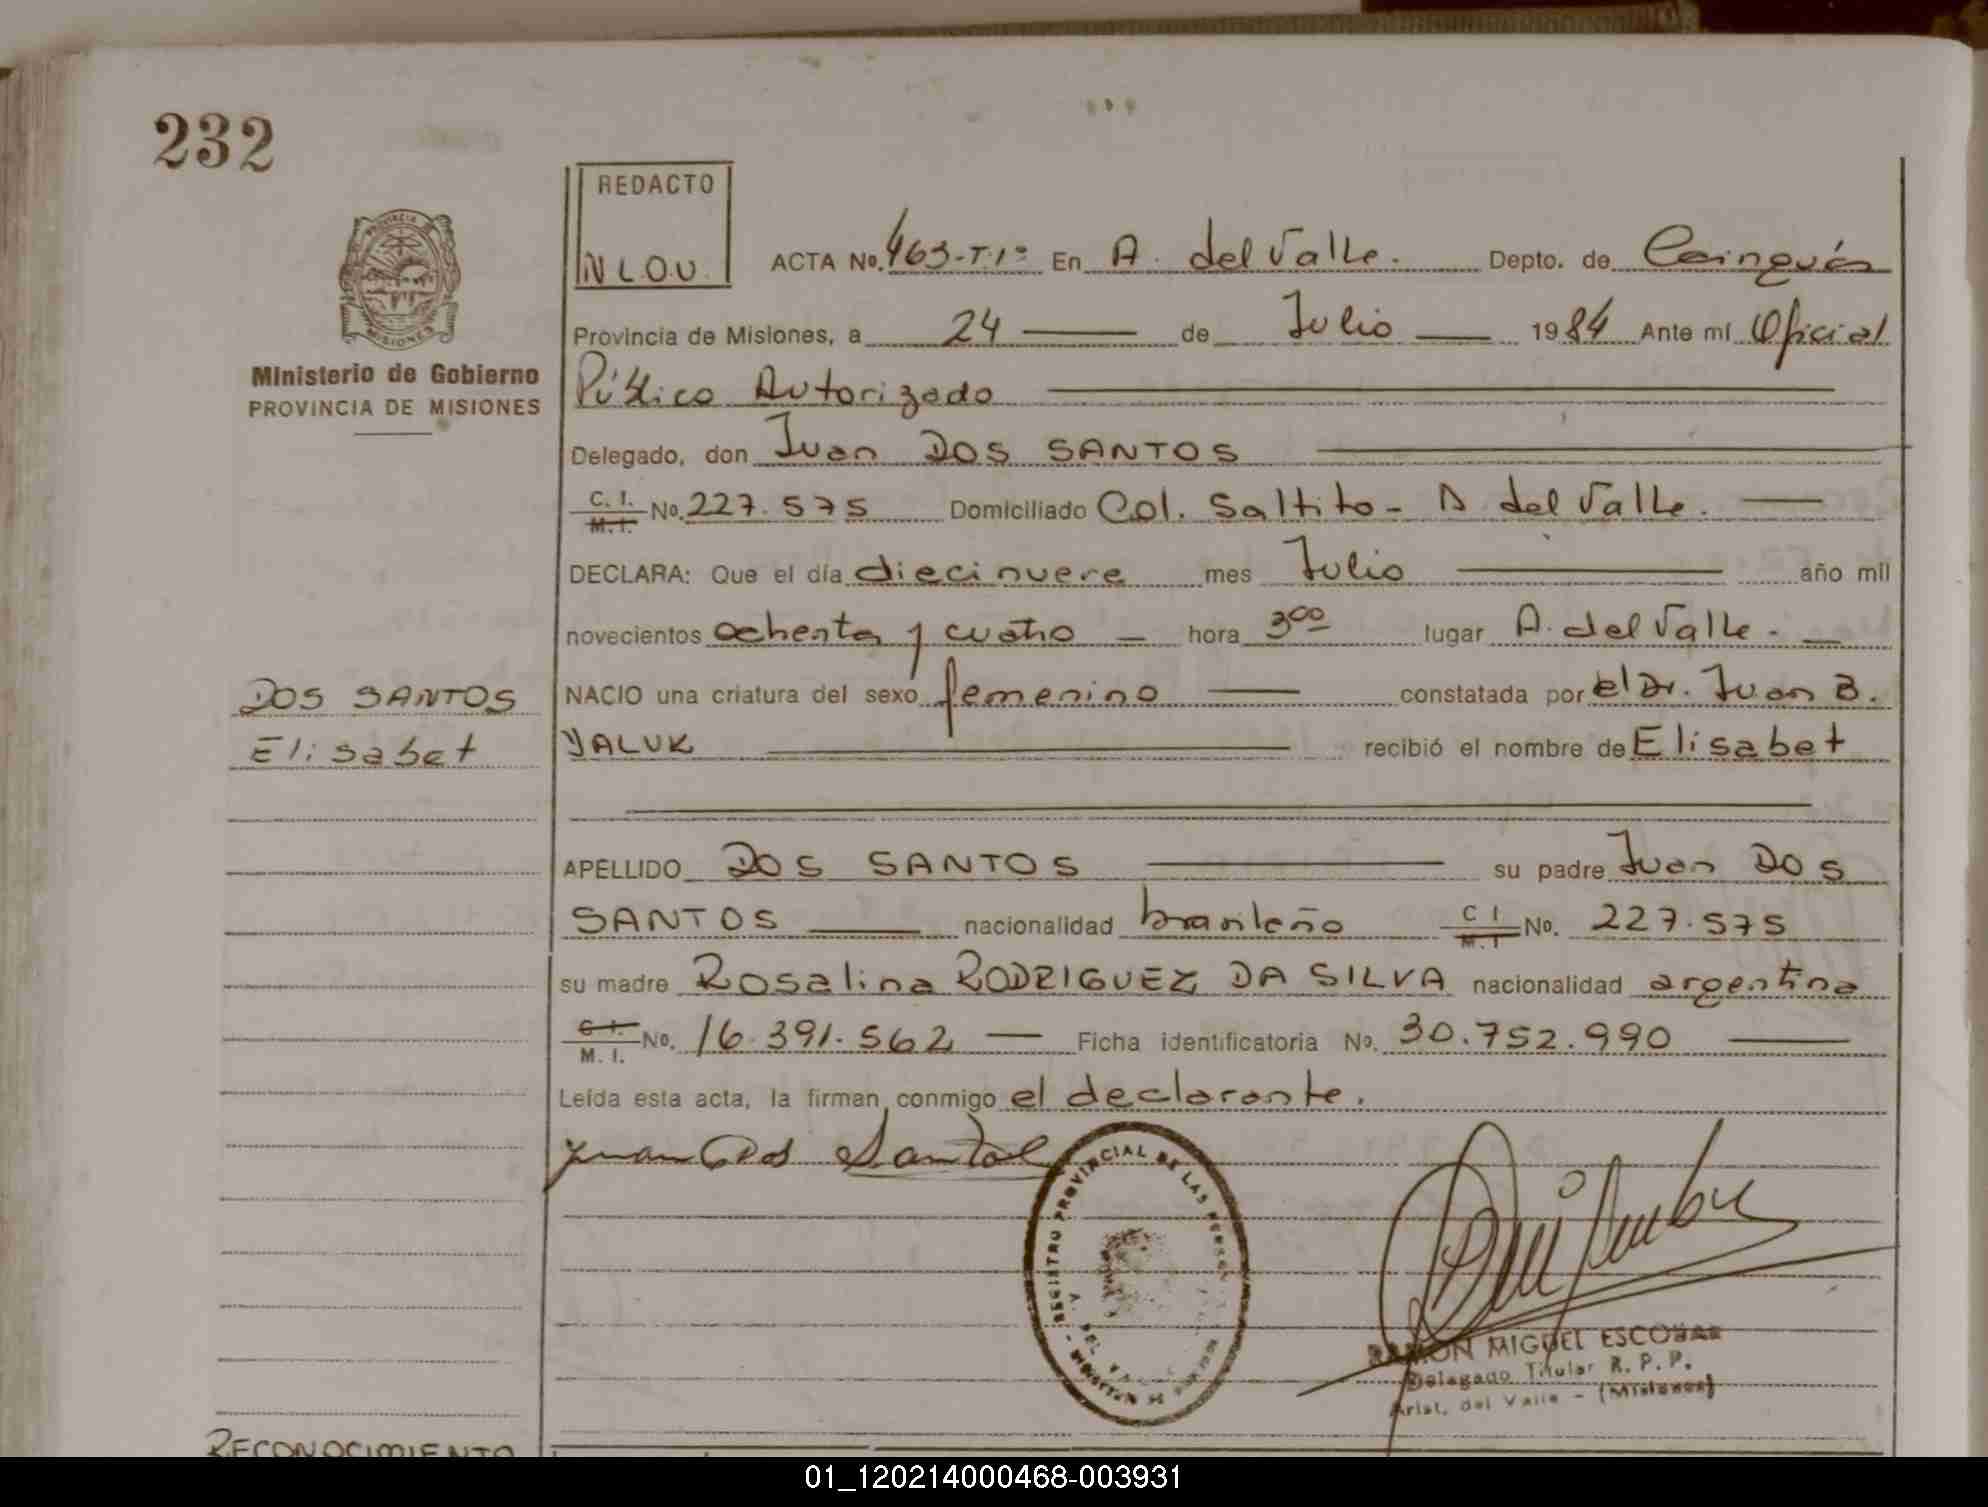 232
REDACTO
N.L.O.V.
PROVINCIA
MISIONES
Ministerio de Gobierno
PROVINCIA DE MISIONES
ACTA No. 463-T.1º En A. del Valle. Depto. de Cainguás
Provincia de Misiones, a 24 de Julio 1984 Ante mí Oficial
Público Autorizado
Delegado, don Juan DOS SANTOS
C. I. M. I. No. 227.575 Domiciliado Col. Saltito - A. del Valle.
DECLARA: Que el día diecinueve mes Julio año mil
novecientos ochenta y cuatro hora 3 00 lugar A. del Valle.
DOS SANTOS
Elisabet
NACIO una criatura del sexo femenino constatada por el Dr. Juan B.
YALUK recibió el nombre de Elisabet
APELLIDO DOS SANTOS su padre Juan DOS
SANTOS nacionalidad brasileño C I M. I No. 227.575
su madre Rosalina RODRIGUEZ DA SILVA nacionalidad argentina
C. I. M. I. No. 16.391.562 Ficha identificatoria No. 30.752.990
Leída esta acta, la firman conmigo el declarante.
Juan Dos Santos
REGISTRO PROVINCIAL DE LAS
RAMON MIGUEL ESCOBAR
Delegado Titular R. P. P.
Arist. del Valle - (Misiones)
RECONOCIMIENTO
01_120214000468-003931